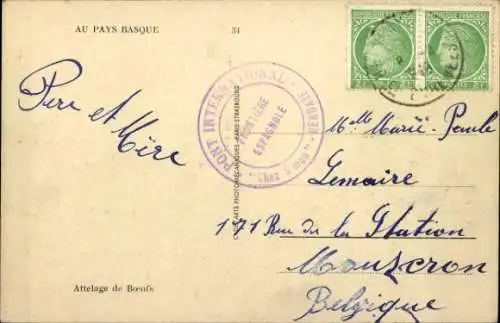 AU PAYS BASQUE
34
PONT INTERNATIONAL - HENDAYE
FRONTIÈRE
ESPAGNOLE
Père et Mère
ARTS PHOTOMÉCANIQUES - PARIS-STRASBOURG
Mlle Marie-Paule
Lemaire
171 Rue de la Station
Mouscron
Belgique
Attelage de Bœufs